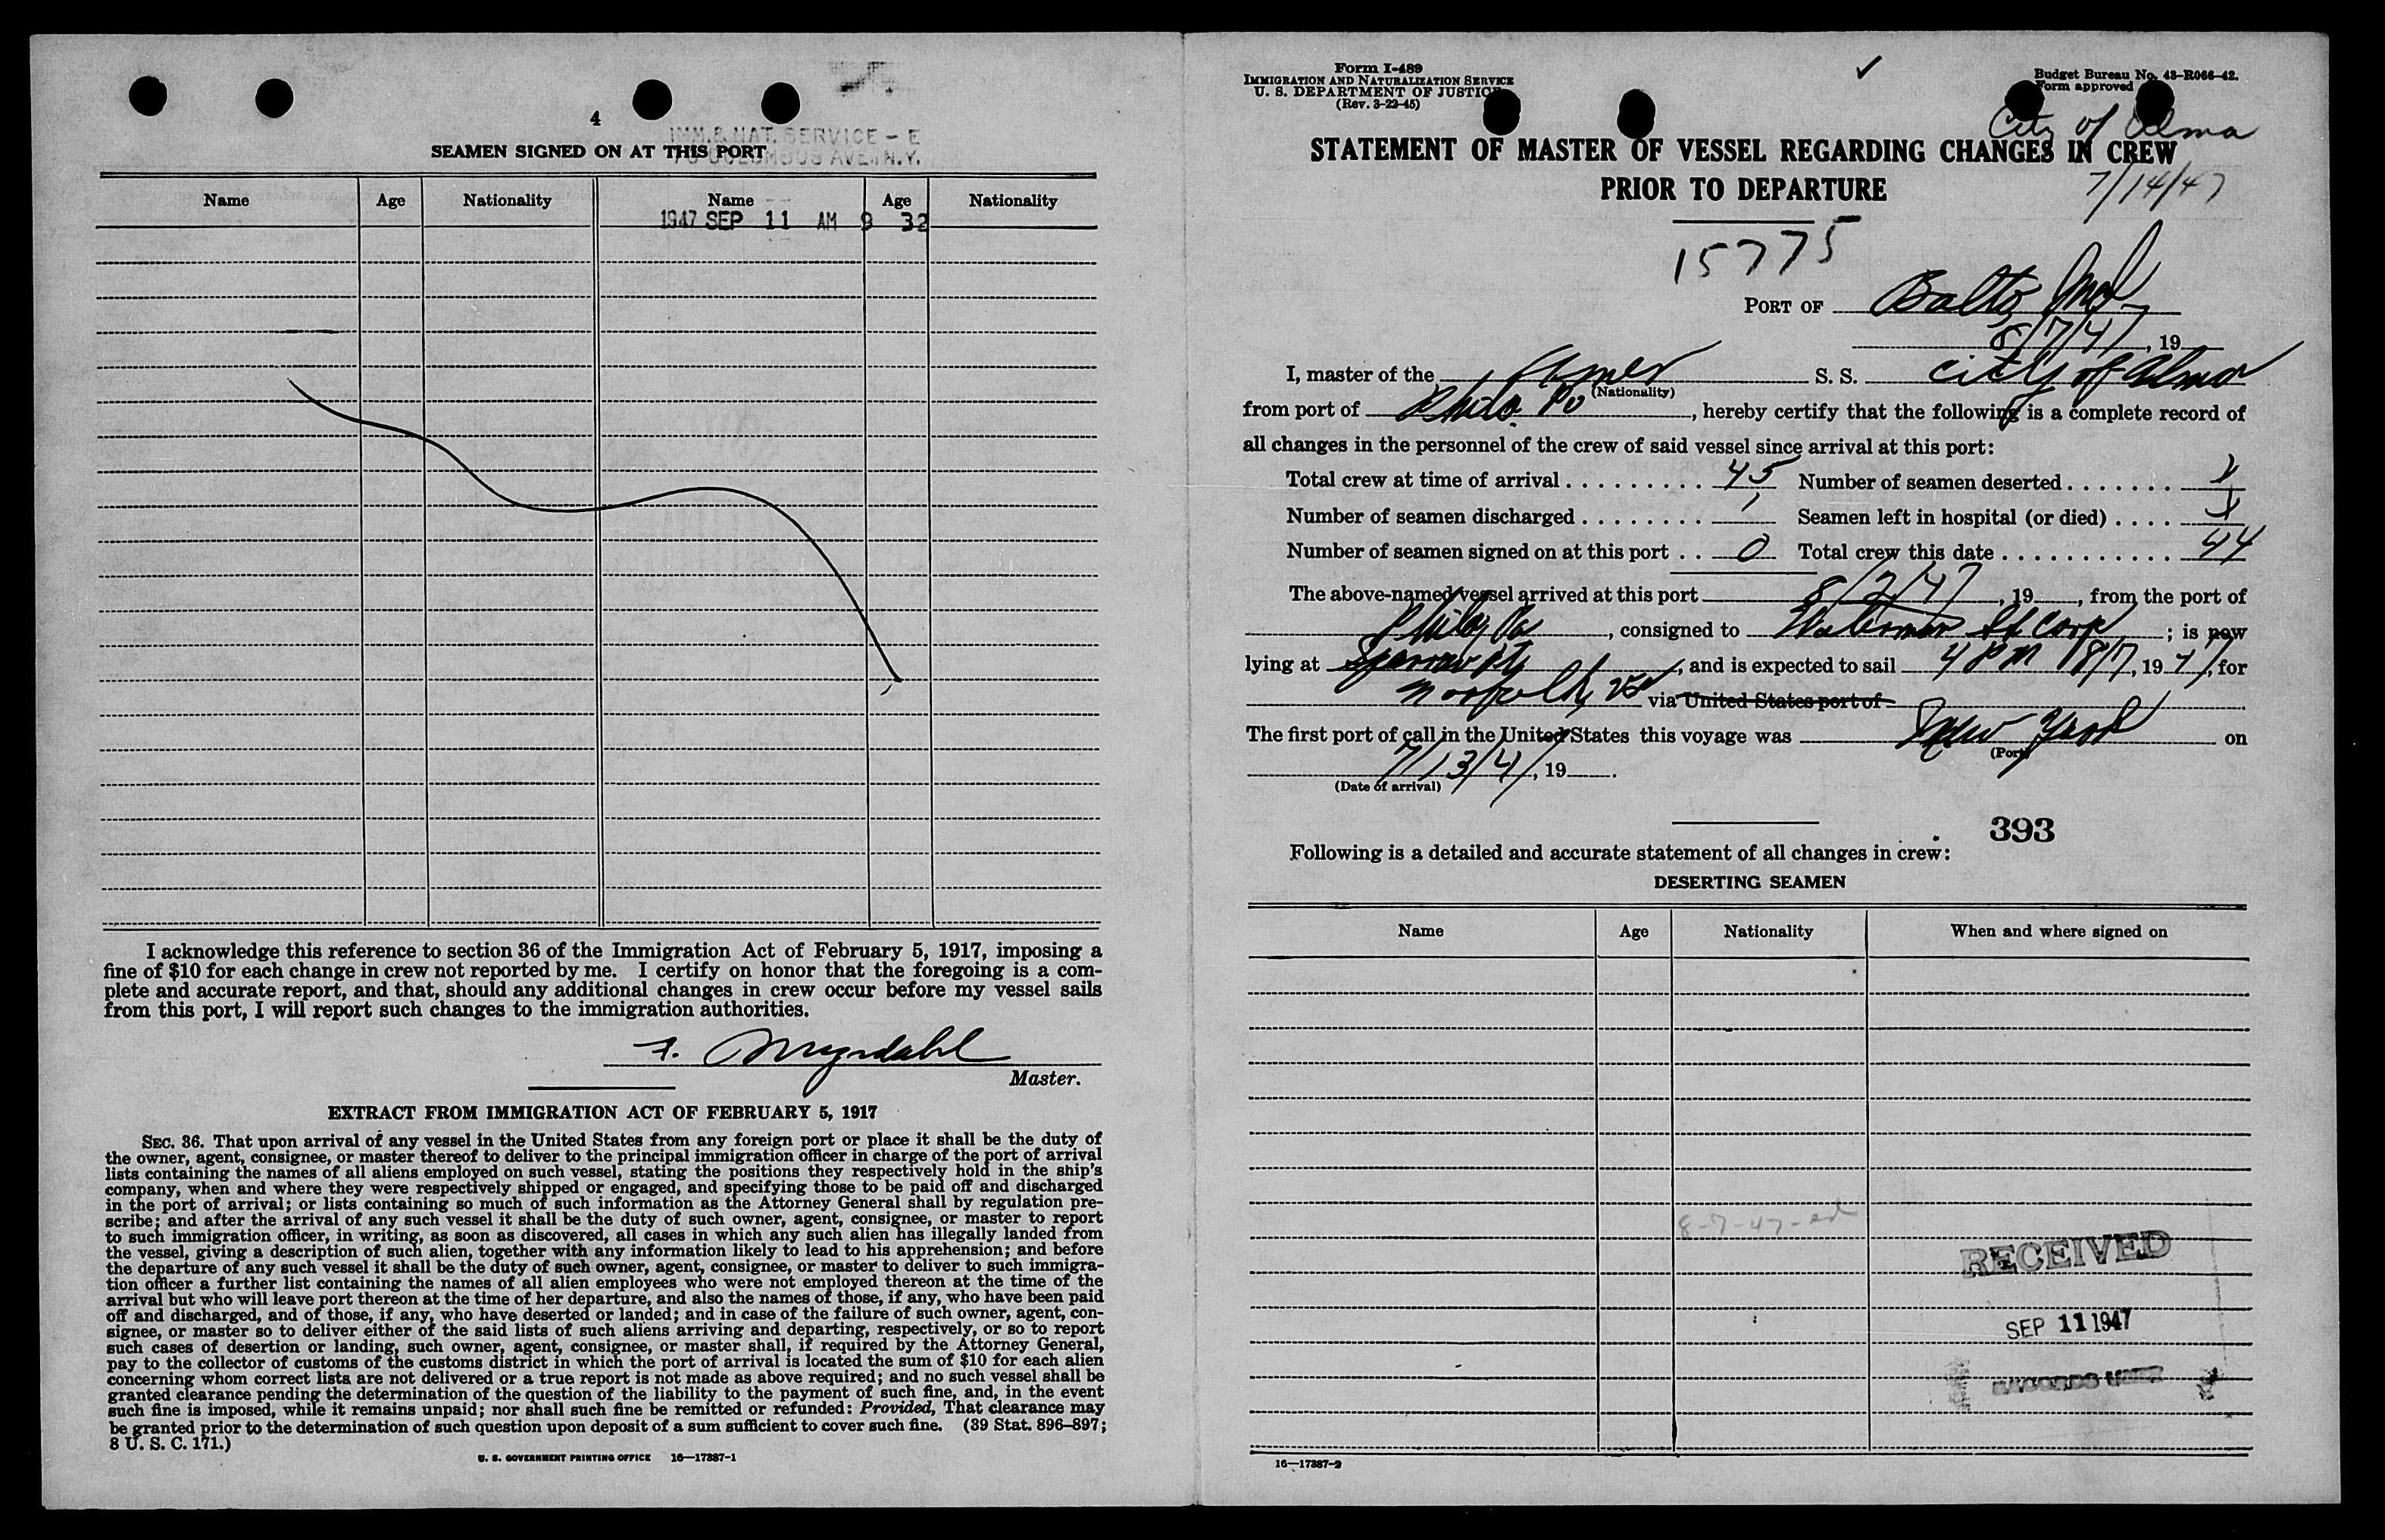 4
IMM. & NAT. SERVICE - E
SEAMEN SIGNED ON AT THIS PORT
COLUMBUS AVE. N.Y.
Name Age Nationality Name Age Nationality
1947 SEP 11 AM 9 32
I acknowledge this reference to section 36 of the Immigration Act of February 5, 1917, imposing a
fine of $10 for each change in crew not reported by me. I certify on honor that the foregoing is a com-
plete and accurate report, and that, should any additional changes in crew occur before my vessel sails
from this port, I will report such changes to the immigration authorities.
Master.
EXTRACT FROM IMMIGRATION ACT OF FEBRUARY 5, 1917
SEC. 36. That upon arrival of any vessel in the United States from any foreign port or place it shall be the duty of
the owner, agent, consignee, or master thereof to deliver to the principal immigration officer in charge of the port of arrival
lists containing the names of all aliens employed on such vessel, stating the positions they respectively hold in the ship's
company, when and where they were respectively shipped or engaged, and specifying those to be paid off and discharged
in the port of arrival; or lists containing so much of such information as the Attorney General shall by regulation pre-
scribe; and after the arrival of any such vessel it shall be the duty of such owner, agent, consignee, or master to report
to such immigration officer, in writing, as soon as discovered, all cases in which any such alien has illegally landed from
the vessel, giving a description of such alien, together with any information likely to lead to his apprehension; and before
the departure of any such vessel it shall be the duty of such owner, agent, consignee, or master to deliver to such immigra-
tion officer a further list containing the names of all alien employees who were not employed thereon at the time of the
arrival but who will leave port thereon at the time of her departure, and also the names of those, if any, who have been paid
off and discharged, and of those, if any, who have deserted or landed; and in case of the failure of such owner, agent, con-
signee, or master so to deliver either of the said lists of such aliens arriving and departing, respectively, or so to report
such cases of desertion or landing, such owner, agent, consignee, or master shall, if required by the Attorney General,
pay to the collector of customs of the customs district in which the port of arrival is located the sum of $10 for each alien
concerning whom correct lists are not delivered or a true report is not made as above required; and no such vessel shall be
granted clearance pending the determination of the question of the liability to the payment of such fine, and, in the event
such fine is imposed, while it remains unpaid; nor shall such fine be remitted or refunded: Provided, That clearance may
be granted prior to the determination of such question upon deposit of a sum sufficient to cover such fine. (39 Stat. 896–897;
8 U. S. C. 171.)
U. S. GOVERNMENT PRINTING OFFICE 16—17387-1
Form I-489
IMMIGRATION AND NATURALIZATION SERVICE
U. S. DEPARTMENT OF JUSTICE
(Rev. 3-22-45)
Budget Bureau No. 43-R066-42.
Form approved
City of Alma
STATEMENT OF MASTER OF VESSEL REGARDING CHANGES IN CREW
PRIOR TO DEPARTURE
7/14/47
15775
PORT OF Balto, Md
8/7/47, 19
I, master of the Amer S. S. City of Alma
(Nationality)
from port of Phila. Pa, hereby certify that the following is a complete record of
all changes in the personnel of the crew of said vessel since arrival at this port:
Total crew at time of arrival 45 Number of seamen deserted
Number of seamen discharged 1 Seamen left in hospital (or died)
Number of seamen signed on at this port 0 Total crew this date 44
The above-named vessel arrived at this port 8/2/47, 19, from the port of
Phila, Pa, consigned to Waterman SS Corp; is now
lying at Sparrows Pt, and is expected to sail 4 PM 8/7, 1947, for
Norfolk, Va via United States port of
The first port of call in the United States this voyage was New York on
(Port)
7/13/47, 19.
(Date of arrival)
393
Following is a detailed and accurate statement of all changes in crew:
DESERTING SEAMEN
Name Age Nationality When and where signed on
8-7-47-ed
RECEIVED
SEP 11 1947
16—17387-2